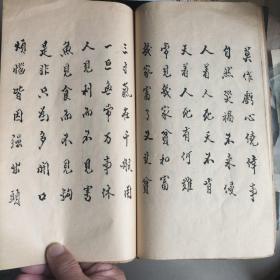 莫作虧心僥倖事
自然災禍不来侵
人着人死天不肯
天着人死有何難
常見幾家貧和富
幾家富了又見貧
三寸氣在千般用
一旦無常万事休
人見利而不見害
魚見食而不見鈎
是非只為多開口
煩惱皆因强出頭